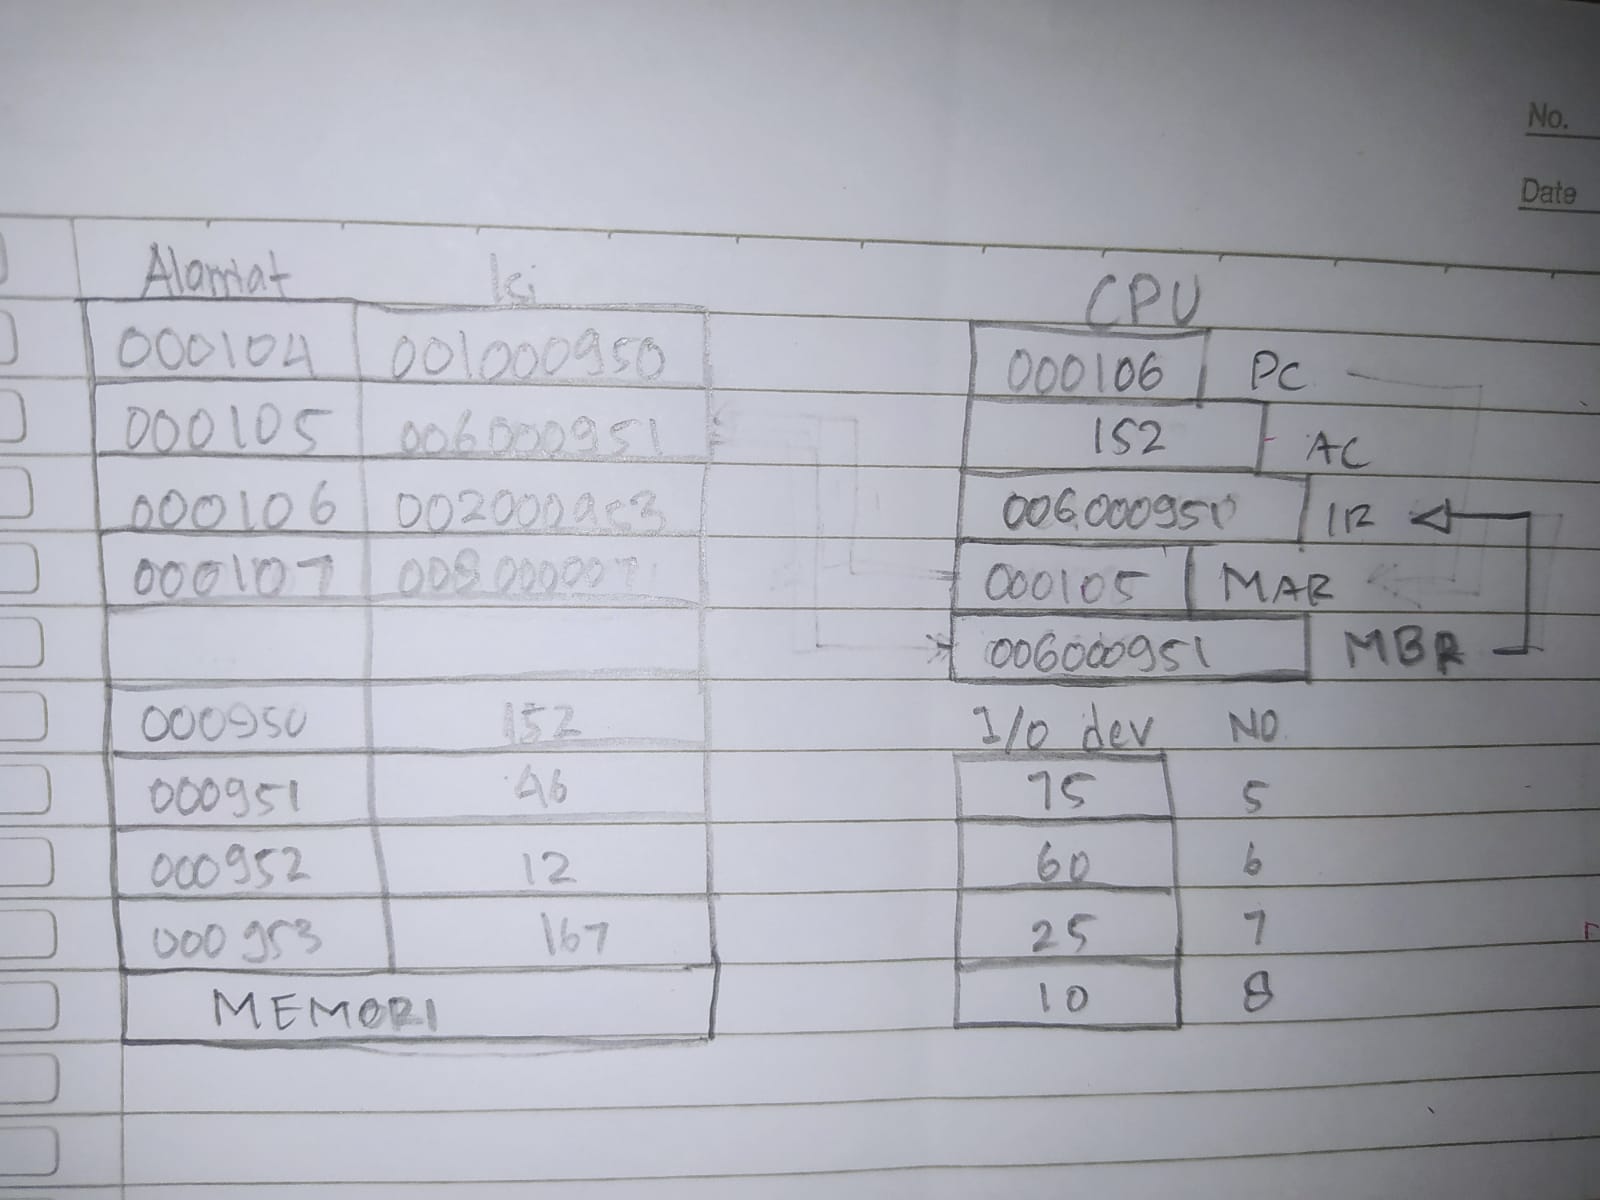 No.
Date
Alamat Isi
000104 001000950
000105 006000951
000106 002000953
000107 008000007
000950 152
000951 46
000952 12
000953 167
MEMORI
CPU
000106 PC
152 AC
006000950 IR
000105 MAR
006000951 MBR
I/O dev NO
75 5
60 6
25 7
10 8